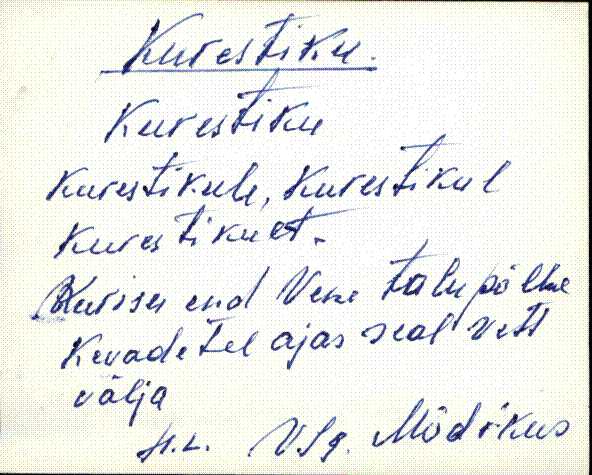 Kurestiku.
Kurestiku
Kurestikule, Kurestikul
Kurestikuet.
end Vene talu põllue
Kevadetel ajas seal vett
välja
H.L. Vlg. Mõdrikus